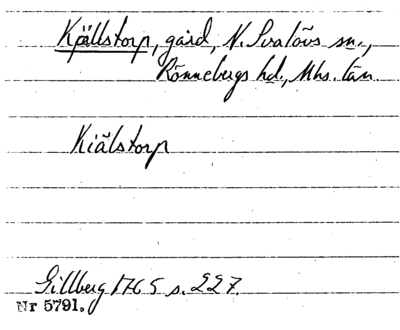 Källstorp, gård, N. Svalövs sn.,
Rönnebergs hd., Mhs. län.
Kiälstorp
Gillberg 1765 s. 227.
Nr 5791.